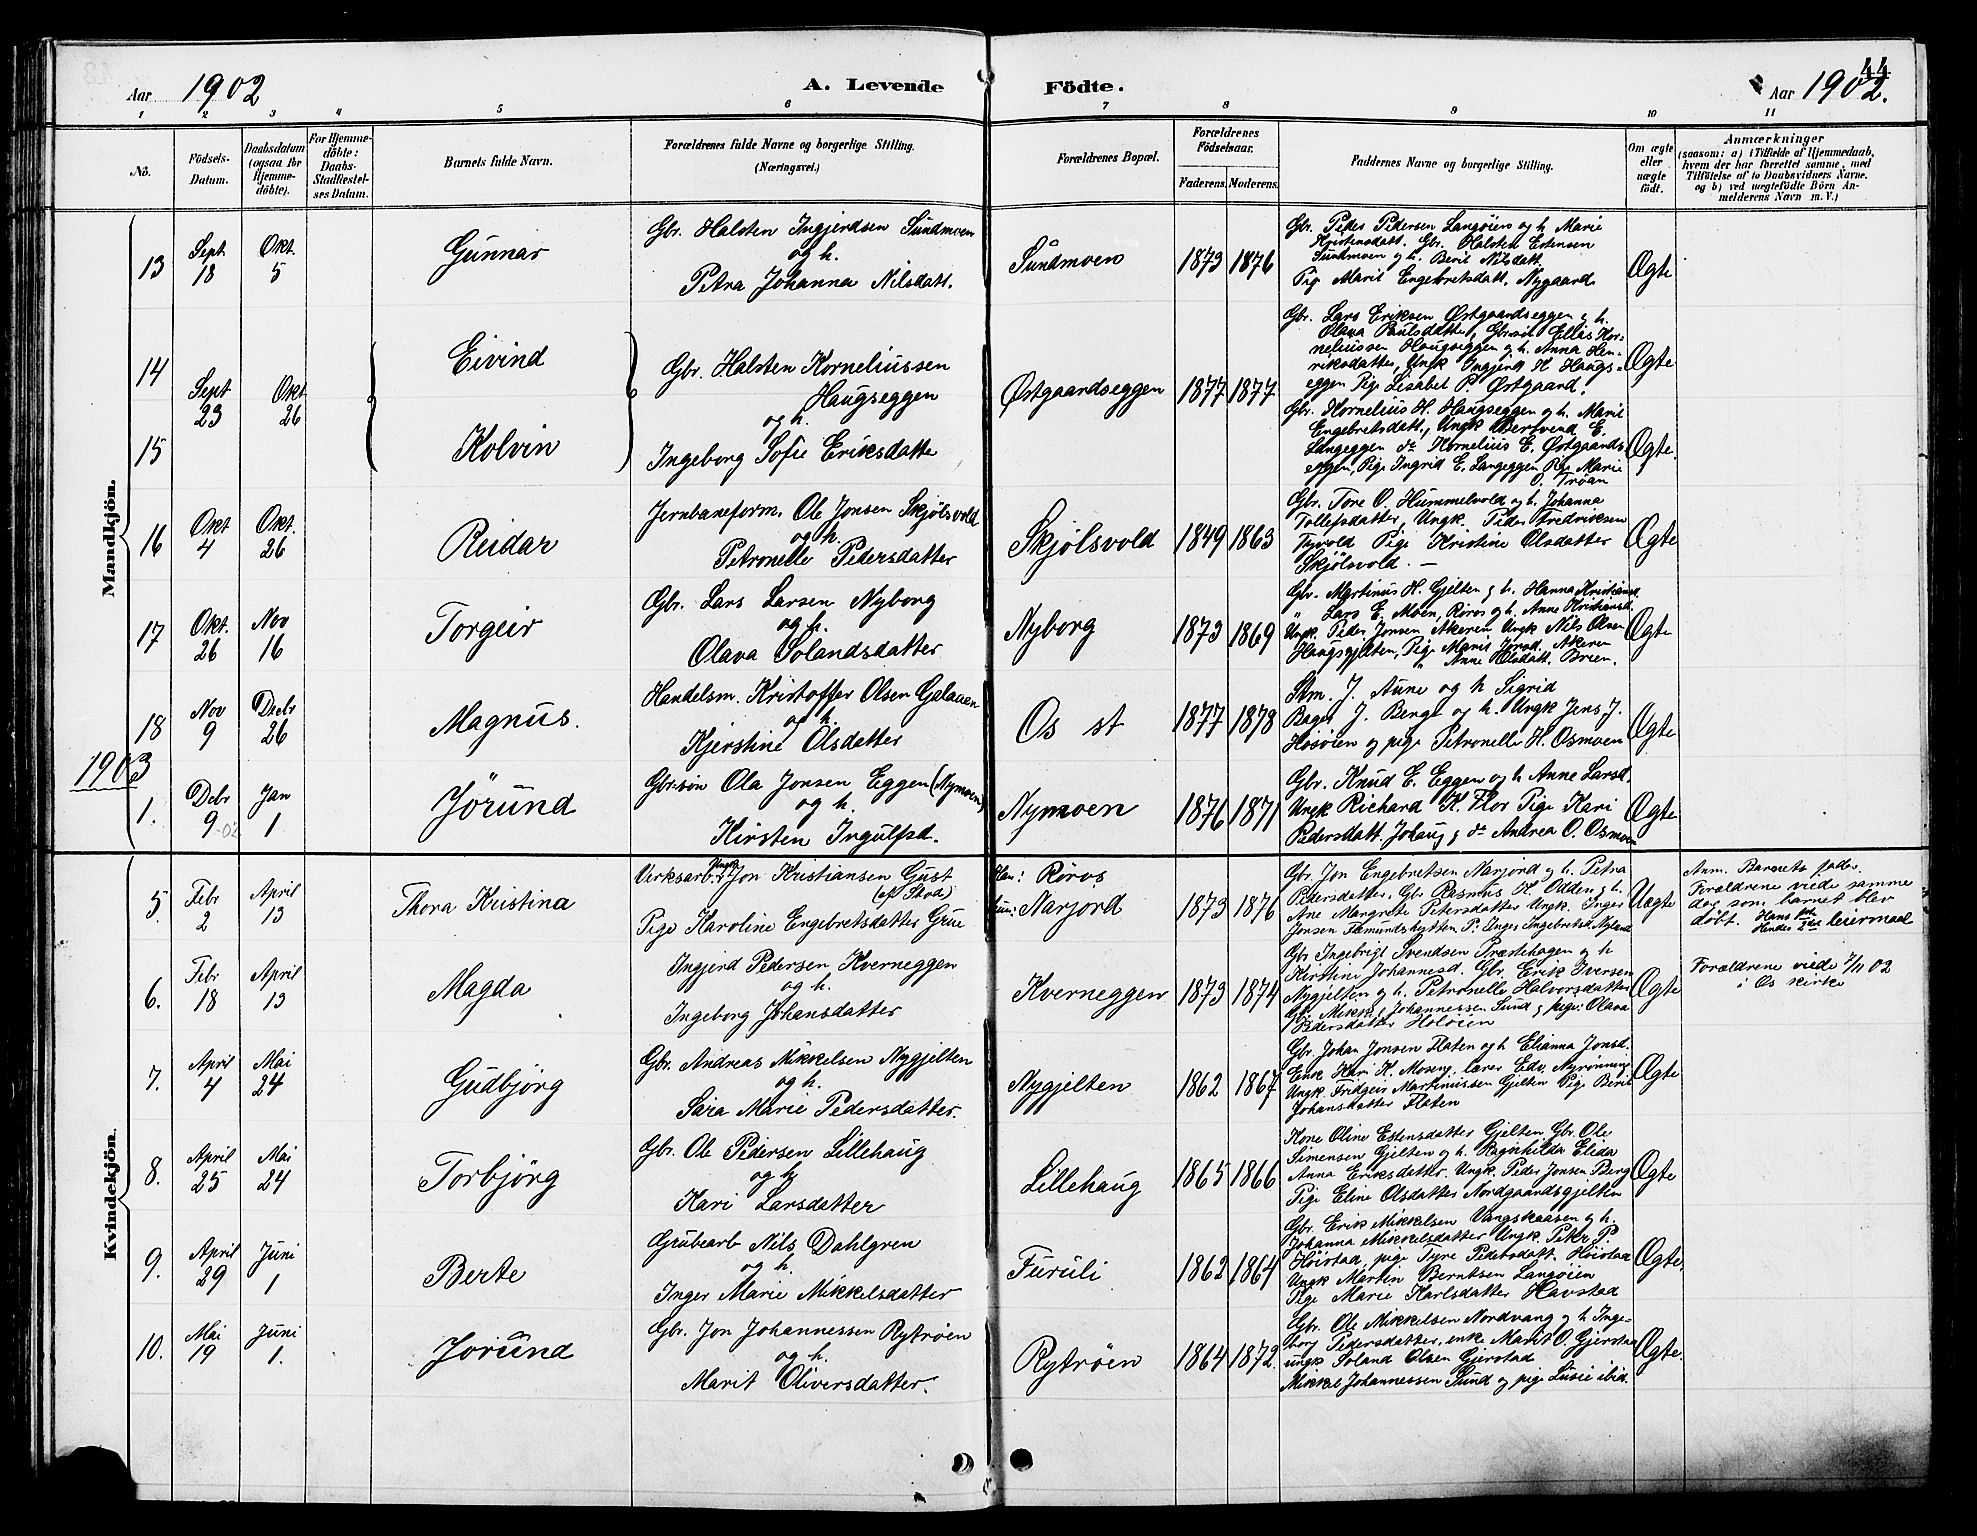 44
Aar 1902
A. Levende Födte.
Aar 1902.
1 2 3 4 5 6 7 8 9 10 11
No.
Födsels-
Datum.
Daabsdatum
(ogsaa for
Hjemme-
döbte).
For Hjemme-
döbte:
Daabs-
Stadfæstel-
ses Datum.
Barnets fulde Navn.
Forældrenes fulde Navne og borgerlige Stilling.
(Næringsvei.)
Forældrenes Bopæl.
Forældrenes
Födselsaar.
Faderens. Moderens.
Faddernes Navne og borgerlige Stilling.
Om ægte
eller
uægte
födt.
Anmærkninger
(saasom: a) i Tilfælde af Hjemmedaab,
hvem der har forrettet samme, med
Tilföielse af to Daabsvidners Navne,
og b) ved uægtefödte Börn An-
melderens Navn m. V.)
Mandkjön.
13
Sept
18
Okt.
5
Gunnar
Gbr. Halsten Ingjerdsen Sundmoen
og h.
Petra Johanna Nilsdatt.
Sundmoen
1873 1876
Gbr. Peder Pedersen Langøien og h. Marie
Kristensdatt. Gbr. Halsten Estensen
Sundmoen og h. Beril Nilsdatt
Pige Marit Engebretsdatt. Nygaard
Ægte
14
15
Sept
23
Okt
26
Eivind
Kolvin
Gbr. Halsten Korneliussen
Haugseggen
og h.
Ingeborg Sofie Eriksdatte
Østgaardseggen
1877 1877
Gbr. Lars Eriksen Østgaardseggen g h.
Olava Paulsdatte, Gbrsøn Ellias Kor-
neliussen Haugseggen g h. Anna Hen-
riksdatter, Ungk Ingjerd K Haugs-
eggen Pige Lisabet P. Østgaard.
Ægte
Gbr. Kornelius H. Haugseggen og h. Marit
Engebretsdatt, Ungk Bersvend E.
Langeggen do Kornelius E. Østgaards
eggen, Pige Ingrid E. Langeggen Pige Marie
O. Trøan
Ægte.
16
Okt
4
Okt.
26
Reidar
Jernbaneform. Ole Jonsen Skjølsvold
og h.
Petronelle Pedersdatter
Skjølsvold
1849 1863
Gbr. Tore O. Hummelvold og h. Johanna
Tollefsdatter, Ungk. Peder Fredriksen
Tryvold Pige Kristine Olsdatter
Skjölsvold. —
Ægte
17
Okt.
26
Nov
16
Torgeir
Gbr. Lars Larsen Nyborg
og h.
Olava Solandsdatter
Nyborg
1873 1869
Gbr. Martinus H. Gjelten g h. Hanna Kristiansd
" Lars E. Moen, Röros og h. Anne Kristiansd.
Ungk. Peder Jonsen Akeren. Ungk Nils Olsen
Haugsgjelten, Pige Marit Jonsd. Akeren
" Anne Olsdatt. Brien.
Ægte
18
Nov
9
Decbr
26
Magnus.
Handelsm. Kristoffer Olsen Galaaen
og h.
Kjerstine Olsdatter
Os st
1877 1878
Stm. J. Aune og h Sigrid
Bager J. Berge og h. Ungk Jens J.
Høsøien g pige Petronelle H. Osmoen
Ægte
1903
1.
Debr
9-02
Jan
1
Jörund
Gbr.søn Ola Jonsen Eggen (Nymoen)
og h.
Kirsten Ingulfsd.
Nymoen
1876 1871
Gbr. Knud E. Eggen og h Anne Larsd.
Ungk Richard K. Flor Pige Kari
Pedersdatt. Johaug g do Andrea O. Osmoen
Ægte
Kvindekjön.
5.
Febr
2
April
13
Thora Kristina
Virksarb. Ungk. Jon Kristiansen Gust
Pige Karoline Engebretsdatter Grue
Han: Röros
Hun: Narjord
1873 1876
Gbr. Jon Engebretsen Narjord g h. Petra
Pedersdatter, Gbr. Rasmus K. Odden g h.
Ane Margrete Petersdatter Ungk. Inger
Jonsen Fæmundshytten P: Inger Ingebretsd. Nyland
Uægte
Anm. Barnets fader.
Forældrene viede samme
dag som barnet blev
døbt. Hans 1ste
Hendes 2det leiermaal
6.
Febr
18
April
13
Magda
Ingjerd Pedersen Kverneggen
og h.
Ingeborg Johansdatter
Kverneggen
1873 1874
Gbr Ingebrigt Svendsen Prætehagen og h
Kirstine Johannesd. Gbr. Erik Iversen
Nygjelten g h. Petronelle Halvorsdatter
Gbr. Mikkel Johannessen Sund g pige: Olava
Pedersdatter Holøien
Ægte
Forældrene viede 7/11 02
i Os kirke
7.
April
4
Mai
24
Gudbjörg
Gbr. Andreas Mikkelsen Nygjelten
og h.
Sara Marie Pedersdatter.
Nygjelten
1862 1867
Gbr. Johan Jonsen Flaten og h Elianna Jonsd.
Enke Kari H. Moseng. lærer Edv. Nyrønning
Ungk. Fridgeir Martinussen Gjelten Pige Berit
Johansdatter Flaten
Ægte
8.
April
25
Mai
24
Torbjörg
Gbr. Ole Pedersen Lillehaug
og h
Kari Larsdatter
Lillehaug
1865 1866
Kone Oline Estensdatter Gjelten Gbr. Ole
Simensen Gjelten g h. Ragnhilda Elida
Anna Eriksdatter. Ungk. Peder Jonsen Berg
Pige Eline Olsdatter Nordgaardsgjelten
Ægte
9.
April
29
Juni
1
Berte
Grubearb Nils Dahlgren
og h.
Inger Marie Mikkelsdatter
Furuli
1862 1864
Gbr. Erik Mikkelsen Vangskaasen g h.
Johanna Mikkelsdatter Ungk. Peter P.
Höistad, pige Tyre Pedersdatt. Höistad
Ungk Martin Berntsen Langøien
Pige Marie Karlsdatter Havstad
Ægte.
10.
Mai
19
Juni
1.
Jorund
Gbr. Jon Johannessen Rytröen
og h.
Marit Oliversdatter.
Rytröen
1864 1872
Gbr. Ole Mikkelsen Nordvang g h Inge-
borg Pedersdatter, enke Marit O. Gjerstad
ungk Soland Olsen Gjerstad
Mikkel Johannessen Sund g pige Lusie ibid.
Ægte.